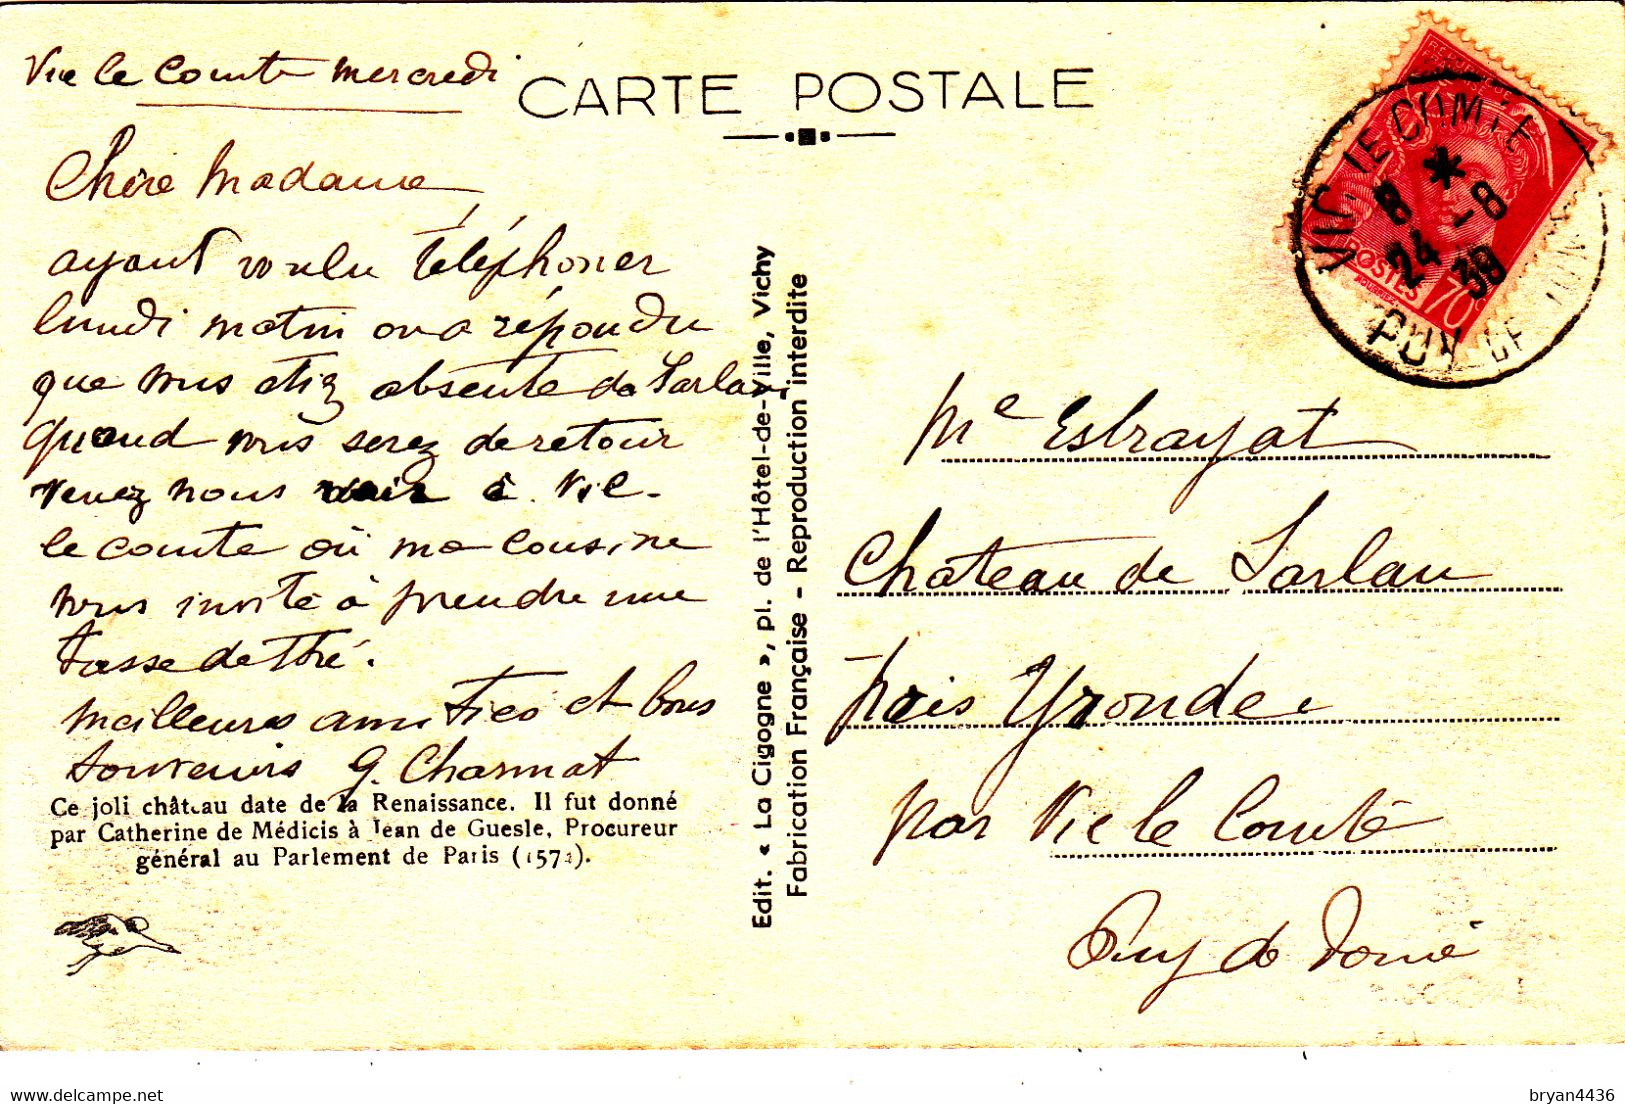 Vic le Comte mercredi
CARTE POSTALE
Chère Madame,
ayant voulu téléphoner
lundi matin on a répondu
que vous étiez absente de Sarlan
quand vous serez de retour
venez nous voir à Vic-
le comte où ma cousine
vous invite à prendre une
tasse de thé.
meilleures amitiés et bons
souvenirs G. Charmat
Ce joli château date de la Renaissance. Il fut donné
par Catherine de Médicis à Jean de Guesle, Procureur
général au Parlement de Paris (1572).
Edit. « La Cigogne », pl. de l'Hôtel-de-Ville, Vichy
Fabrication Française - Reproduction interdite
VIC LE COMTE
8 * -8
24 39
PUY DE DOME
POSTES 70c
Me Estrayat
Chateau de Sarlan
près Yronde
par Vic le Comte
Puy de Dome
bryan4436